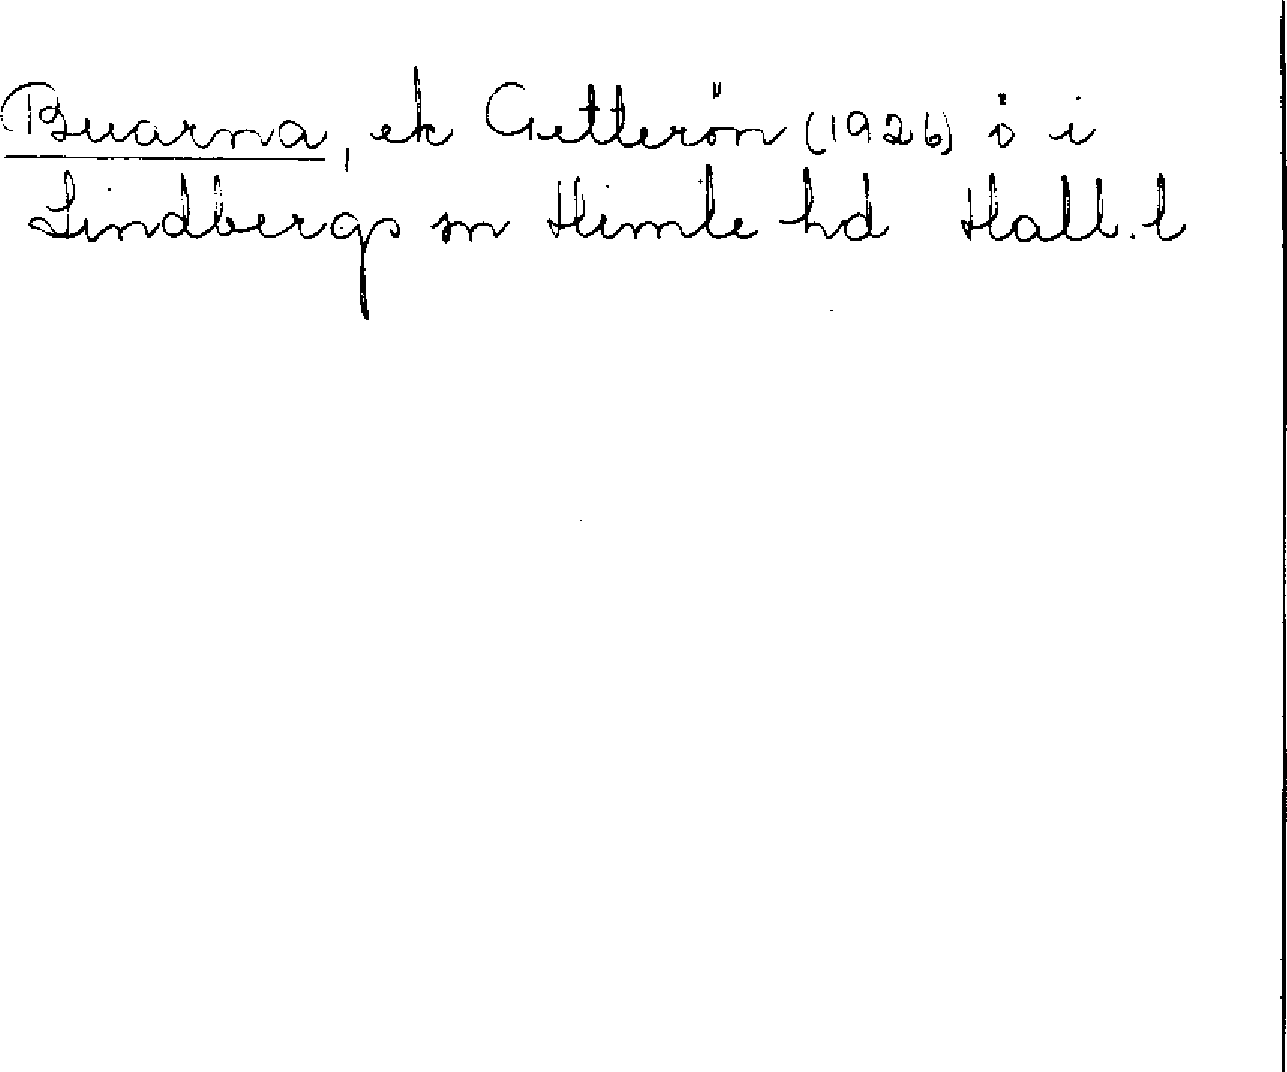 Buarna, ek Getterön (1926) ö i
Lindbergs sn Himle hd Hall. l